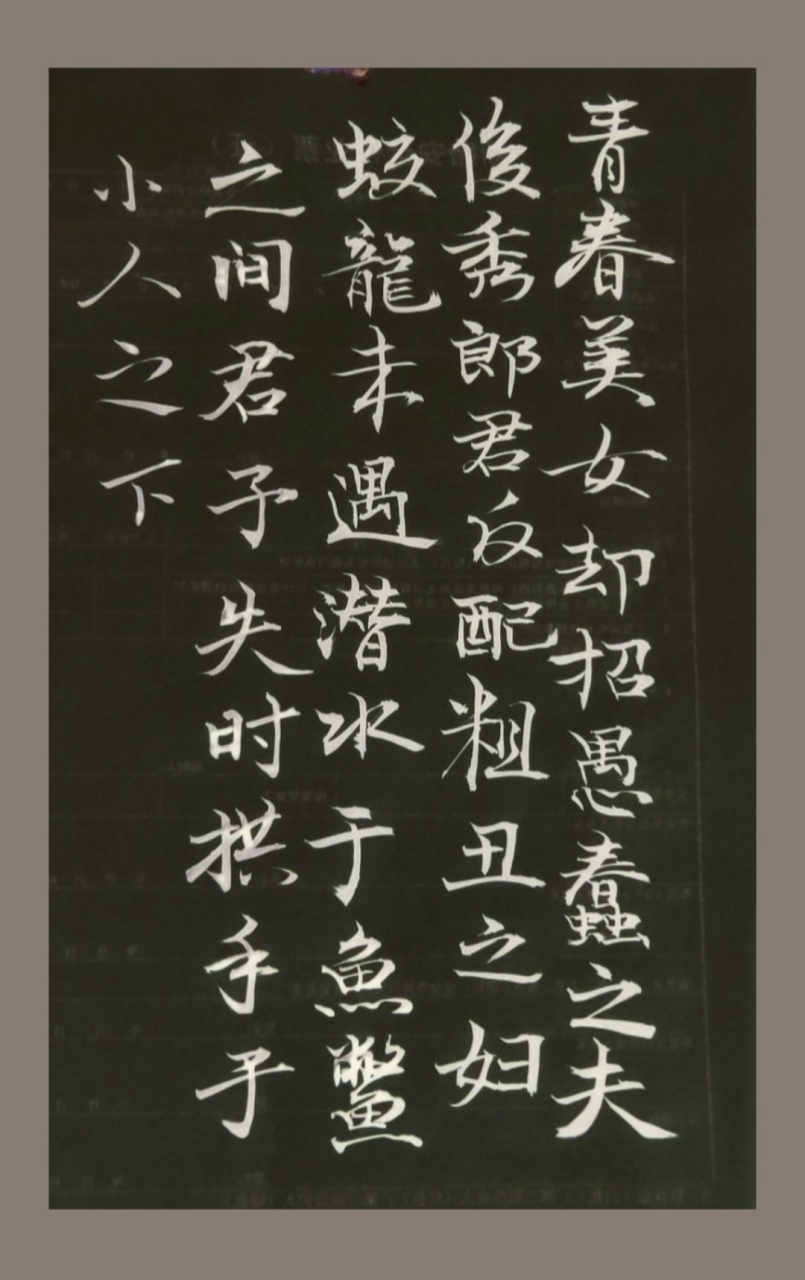 青春美女却招愚蠢之夫
俊秀郎君反配粗丑之妇
蛟龍未遇潜水于魚鳖
之间君子失时拱手于
小人之下